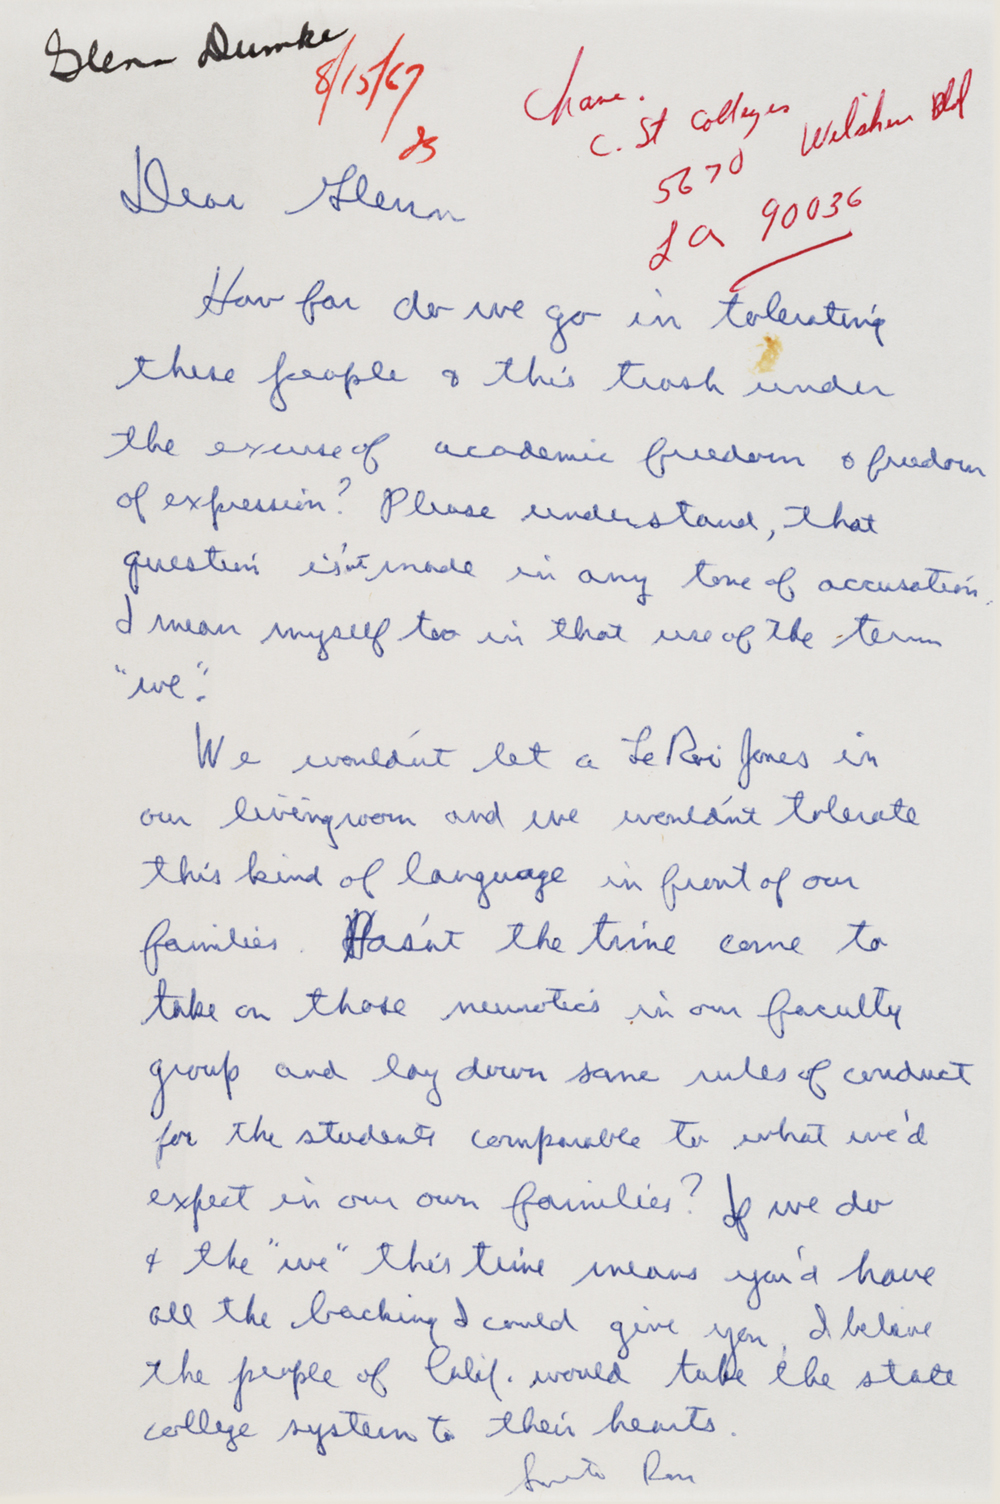 Glenn Dumke
8/15/67
Chanc.
C. St Colleges
5670 Wilshire Bld
LA 90036
Dear Glenn
How far do we go in tolerating
these people & this trash under
the excuse of academic freedom & freedom
of expression? Please understand, that
question isn't made in any tone of accusation.
I mean myself too in that use of the term
"we".
We would'nt let a LeRoi Jones in
our livingroom and we would'nt tolerate
this kind of language in front of our
families. Has'nt the time come to
take on those neurotics in our faculty
group and lay down some rules of conduct
for the students comparable to what we'd
expect in our own families? If we do
& the "we" this time means you'd have
all the backing I could give you, I believe
the people of Calif. would take the state
college system to their hearts.
Ron